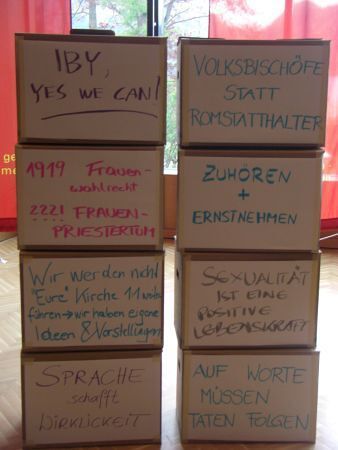 IBY,
YES WE CAN!
1919 Frauen-
wahlrecht
2221 FRAUEN-
PRIESTERTUM
Wir werden nicht
"Eure" Kirche 1:1 weiter
führen → wir haben eigene
Ideen & Vorstellungen
SPRACHE
schafft
WIRKLICKEIT
VOLKSBISCHÖFE
STATT
ROMSTATTHALTER
ZUHÖREN
+
ERNSTNEHMEN
SEXUALITÄT
IST EINE
POSITIVE
LEBENSKRAFT
AUF WORTE
MÜSSEN
TATEN FOLGEN